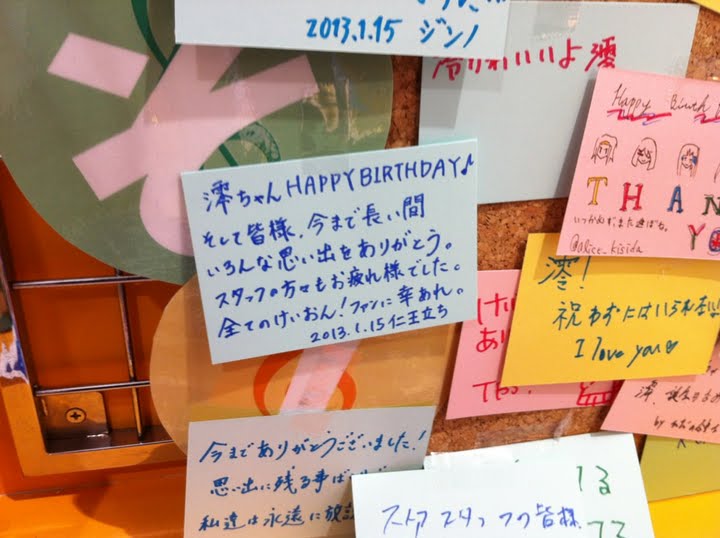 2013.1.15 ジンノ
澪
Happy Birth
THAN
Y
@alice_kisida
澪ちゃん HAPPY BIRTHDAY♪
そして皆様、今まで長い間
いろんな思い出をありがとう。
スタッフの方々もお疲れ様でした。
全てのけいおん!ファンに幸あれ。
2013.1.15 仁王立ち
澪!
祝わずにはいられない
I love you♡
けい
あり
TBS
今までありがとうございました!
思い出に残る事ば
私達は永遠に放課
ストアスタッフの皆様